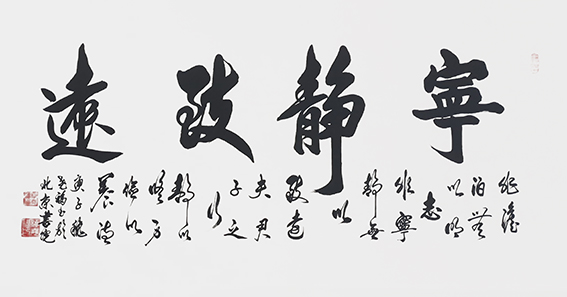 寧静致遠
非澹
泊無
以明
志
非寧
靜無
以
致遠
夫君
子之
行
靜以
修身
儉以
養德
庚子
北京書